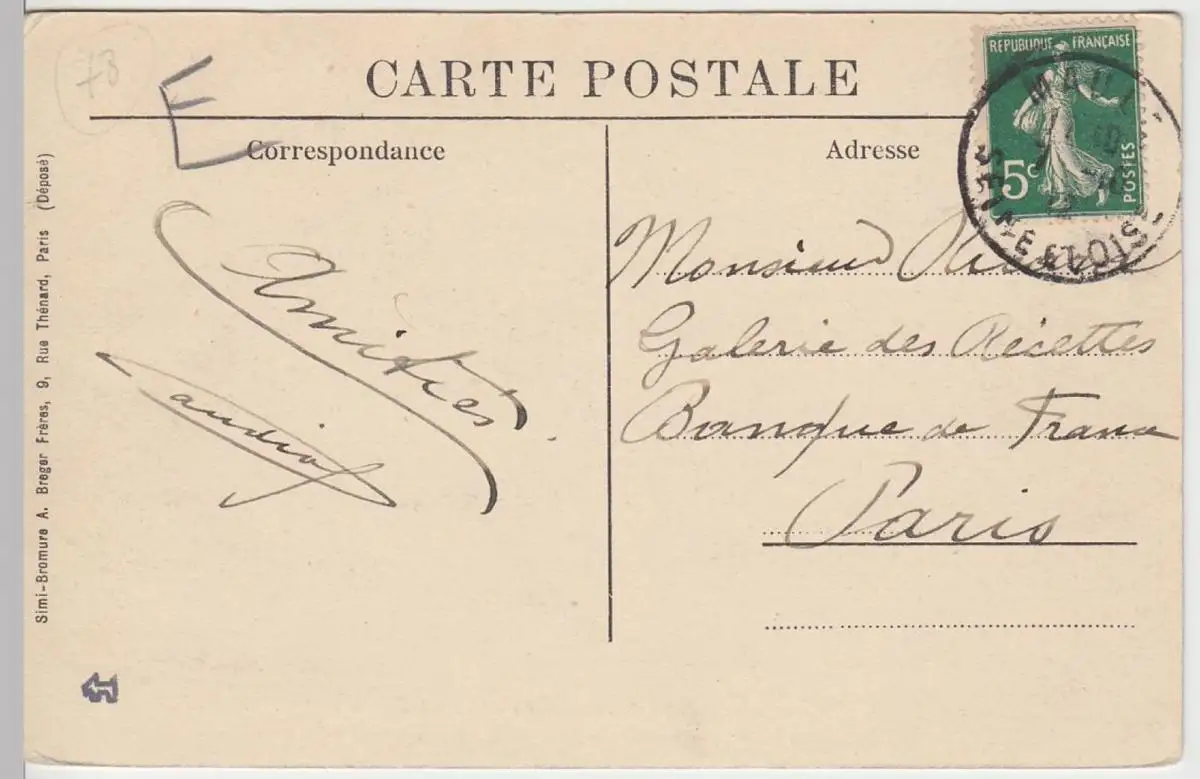 78
CARTE POSTALE
Correspondance
Adresse
REPUBLIQUE FRANÇAISE
5c
POSTES
SEINE ET OISE
Amitiés
Monsieur
Galerie des Récettes
Banque de France
Paris
Simi-Bromure A. Breger Frères, 9, Rue Thénard, Paris (Déposé)